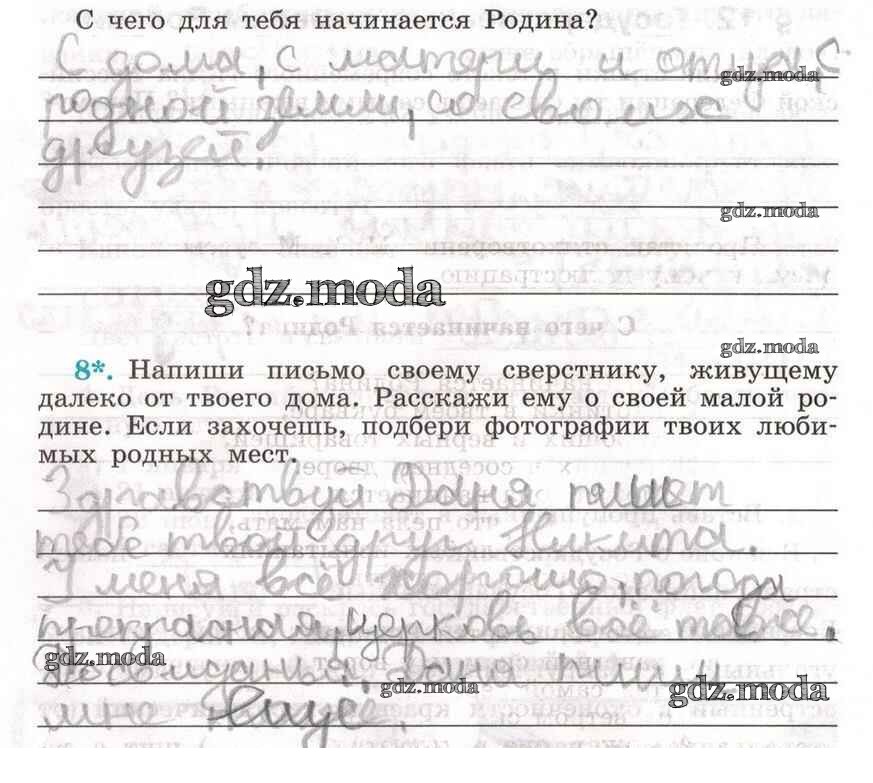 С чего для тебя начинается Родина?
С дома, с матери и отца, с
gdz.moda
родной земли, со своих
друзей.
gdz.moda
gdz.moda
С чего начинается Родина?
gdz.moda
8*. Напиши письмо своему сверстнику, живущему
далеко от твоего дома. Расскажи ему о своей малой ро-
дине. Если захочешь, подбери фотографии твоих люби-
мых родных мест.
Здравствуй Даня пишет
тебе твой друг Никита.
У меня всё хорошо, погода
прекрасная, церковь всё также.
gdz.moda
Досвидания. Даня пиши
gdz.moda
gdz.moda
мне ещё.